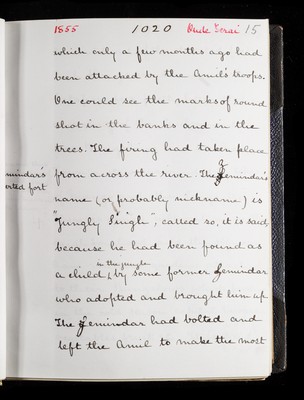 1855 1020 Oude Terai 15
which only a few months ago had
been attacked by the Amil's troops.
One could see the marks of round
shot in the banks and in the
trees. The firing had taken place
emindar's
erted fort
from across the river. The Zemindar's
name (or probably nickname) is
"Jungly Singh", called so, it is said,
because he had been found as
in the jungle
a child, by some former Zemindar
who adopted and brought him up
The Zemindar had bolted and
left the Amil to make the most